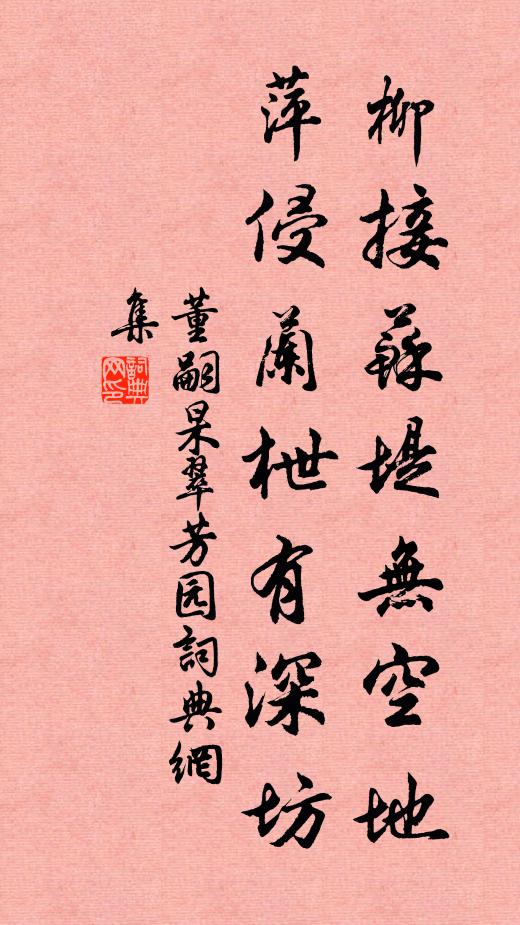 柳接蘇堤無空地
萍侵蘭枻有深坊
董嗣杲翠芳园詞典網
集
詞典
网印